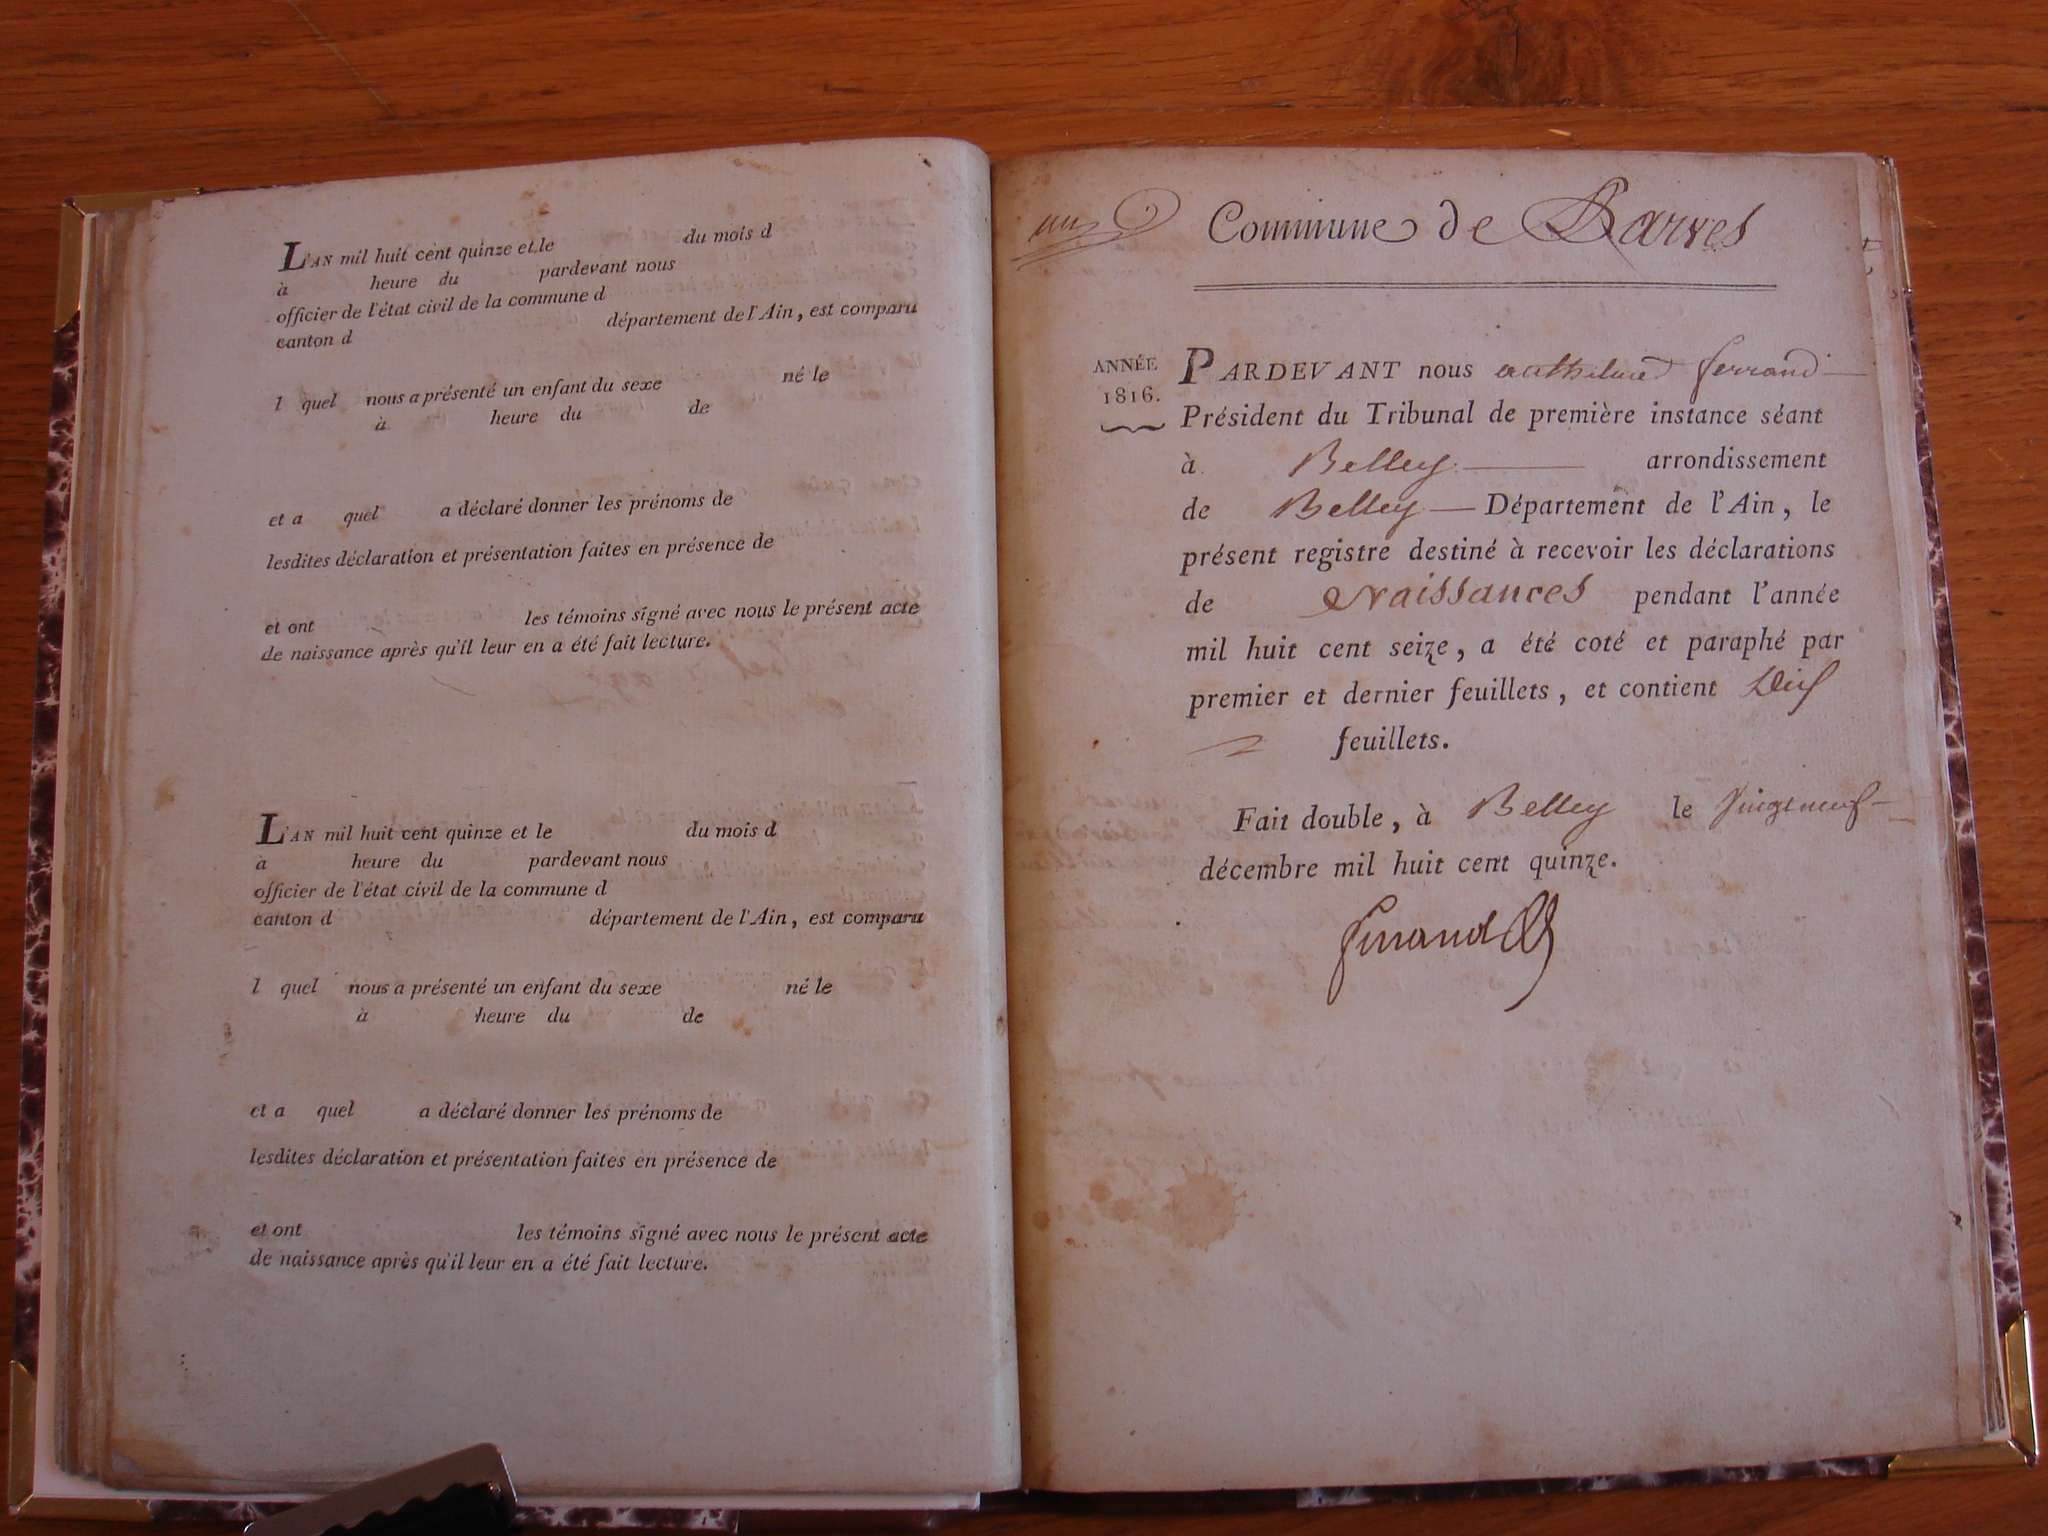 L'AN mil huit cent quinze et le du mois d
à heure du pardevant nous
officier de l'état civil de la commune d
canton d département de l'Ain, est comparu
l quel nous a présenté un enfant du sexe né le
à heure du de
et a quel a déclaré donner les prénoms de
lesdites déclaration et présentation faites en présence de
et ont les témoins signé avec nous le présent acte
de naissance après qu'il leur en a été fait lecture.
L'AN mil huit cent quinze et le du mois d
à heure du pardevant nous
officier de l'état civil de la commune d
canton d département de l'Ain, est comparu
l quel nous a présenté un enfant du sexe né le
à heure du de
et a quel a déclaré donner les prénoms de
lesdites déclaration et présentation faites en présence de
et ont les témoins signé avec nous le présent acte
de naissance après qu'il leur en a été fait lecture.
Commune de Parves
ANNÉE
1816.
PARDEVANT nous anthelme ferrand
Président du Tribunal de première instance séant
à Belley arrondissement
de Belley Département de l'Ain, le
présent registre destiné à recevoir les déclarations
de Naissances pendant l'année
mil huit cent seize, a été coté et paraphé par
premier et dernier feuillets, et contient
feuillets.
Fait double, à Belley le vingt neuf
décembre mil huit cent quinze.
ferrand